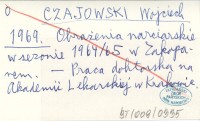 O CZAJOWSKI Wojciech
1969. Obrażenia narciarskie
w sezonie 1964/65 w Zakopa-
nem. — Praca doktorska na
Akademii Lekarskiej w Krakowie